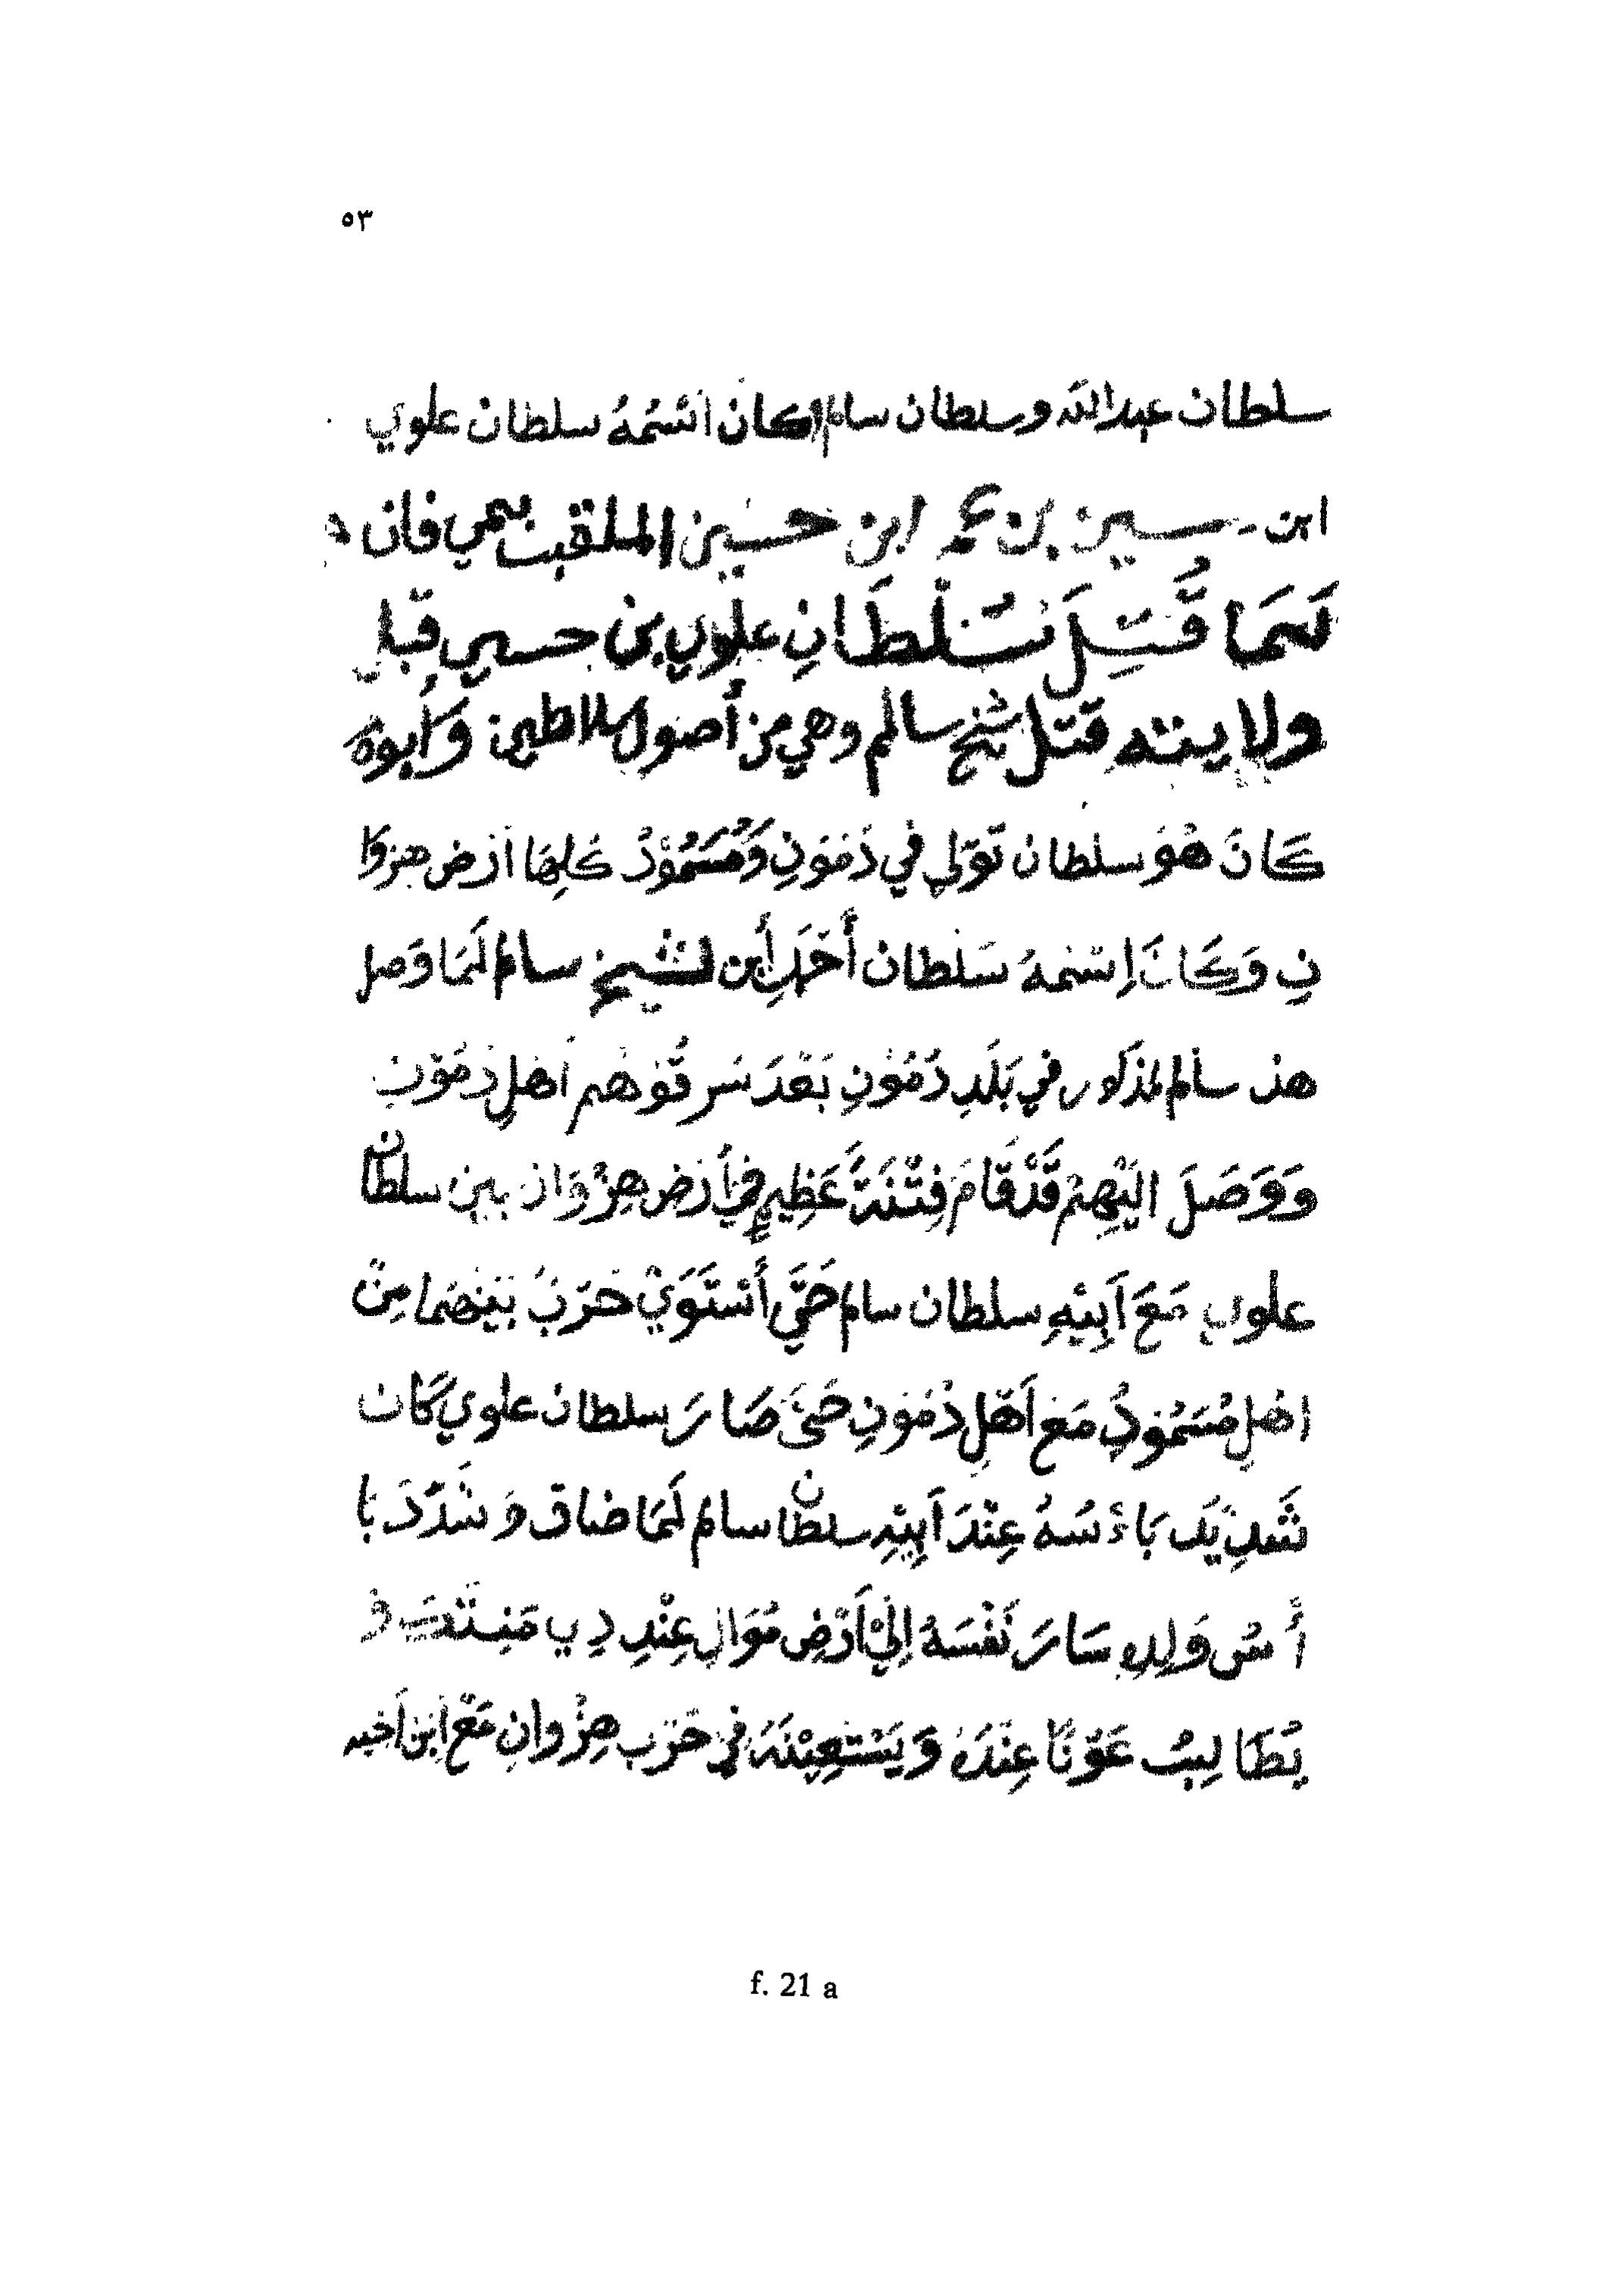 ٥٣
سلطان عبدالله وسلطان سالم كان اسْمُهُ سلطان علوي
ابن حسين بن محمد ابن حسين الملقب فان
لَمَا قُتِلَ سُلْطَانِ علوي بن حسين قبل
ولايته قتل شيخ سالم وهي من أصول سلاطين وَأَبوهُ
كَانَ هُوَ سلطان تَوَلي في دَمَوَنِ وَمُسَمُوْدُ كُلِهَا أَرْض هزوا
نِ وَكَانَ اِسْمهُ سَلطان أَحْمَد اِبن الشيخ سالم لَمَا وَصل
هذ سالم المذكور في بَلَدِ دَمُوْنِ بَعْدَ سَرقُوْهُم أَهلِ دَمَوْنِ
وَوَصَلَ الَيْهِمْ قَدْ قَامَ فِتْنَةً عَظِيمٍ فِي أَرْض هِزْوَان بين سلطان
علوي مَعَ أَبِيْهِ سلطان سالم حَتَّي أَسْتَوَيْ حَرْبٌ بَيْنهُمَا مِنْ
اهلِ مُسَمُودُ مَع أَهْلِ دُمَوَنِ حَتيَ صَارَ سلطان علوي كَان
شَدِيْد بَاءْسُهُ عِنْدَ أَبِيْهِ سلطان سالم لَمَا ضاق وَشَدَّدَ بَا
أْسُ وَلِدِهِ سَارَ نَفْسَهُ اِلَيْ أَرْضِ مُوَالِ عِنْدِ دِي مَنِتْ وَ
يُطَالِبُ عَوْنًا عِنْدَهُ وَيَسْتَعِيْنَهُ في حَرْبِ هِزْوانِ مَعْ اَبن أَخيه
f. 21 a